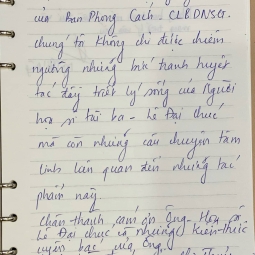 của Ban Phong Cách CLBDNSG.
chúng tôi không chỉ được chiêm
ngưỡng những bức tranh tuyệt
tác đầy triết lý sống của Người
họa sĩ tài ba - Lê Đại Chúc
mà còn những câu chuyện tâm
linh liên quan đến những tác
phẩm này.
Chân thành cám ơn Ông - Họa sĩ
Lê Đại Chúc và những kiến thức
uyên bác của Ông.